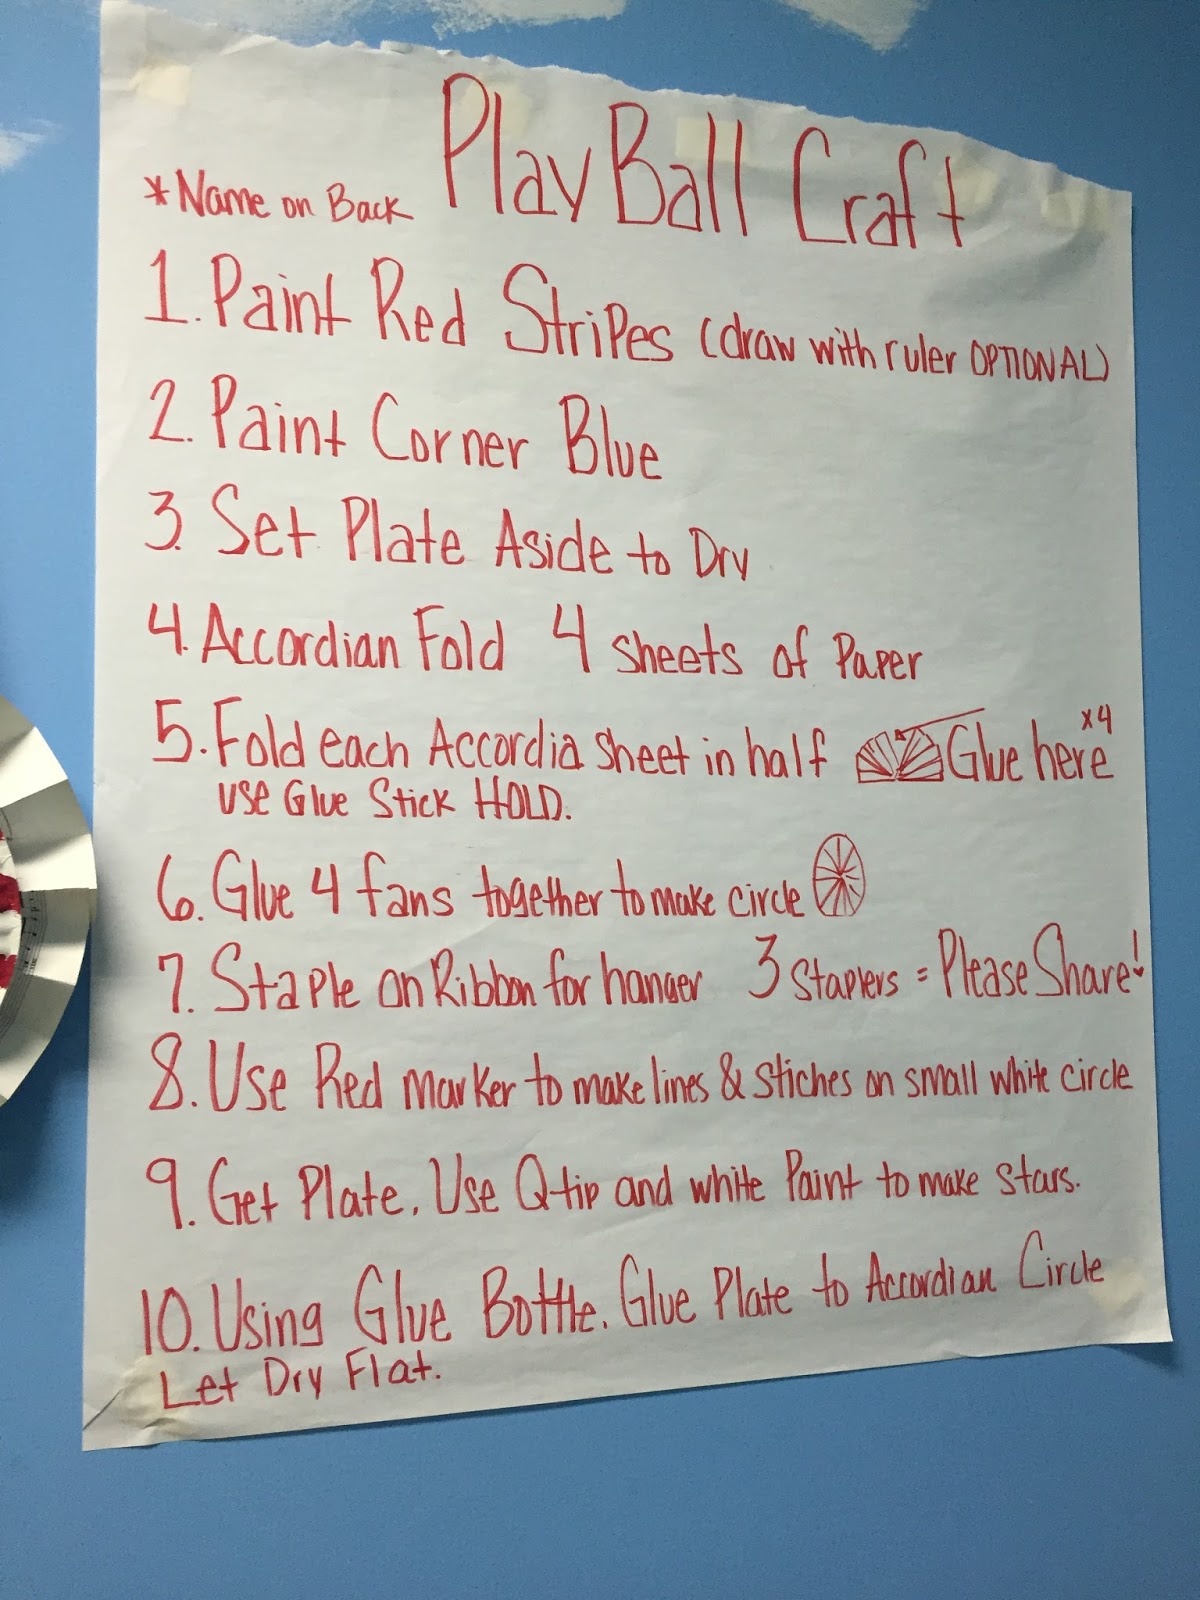 Play Ball Craft
*Name on Back
1. Paint Red Stripes (draw with ruler OPTIONAL)
2. Paint Corner Blue
3. Set Plate Aside to Dry
4. Accordian Fold 4 sheets of Paper
5. Fold each Accordia sheet in half Glue here x4
use Glue Stick HOLD.
6. Glue 4 fans together to make circle
7. Staple on Ribbon for hanger 3 Staplers = Please Share!
8. Use Red marker to make lines & stiches on small white circle
9. Get Plate. Use Q-tip and white Paint to make stars.
10. Using Glue Bottle. Glue Plate to Accordian Circle
Let Dry Flat.